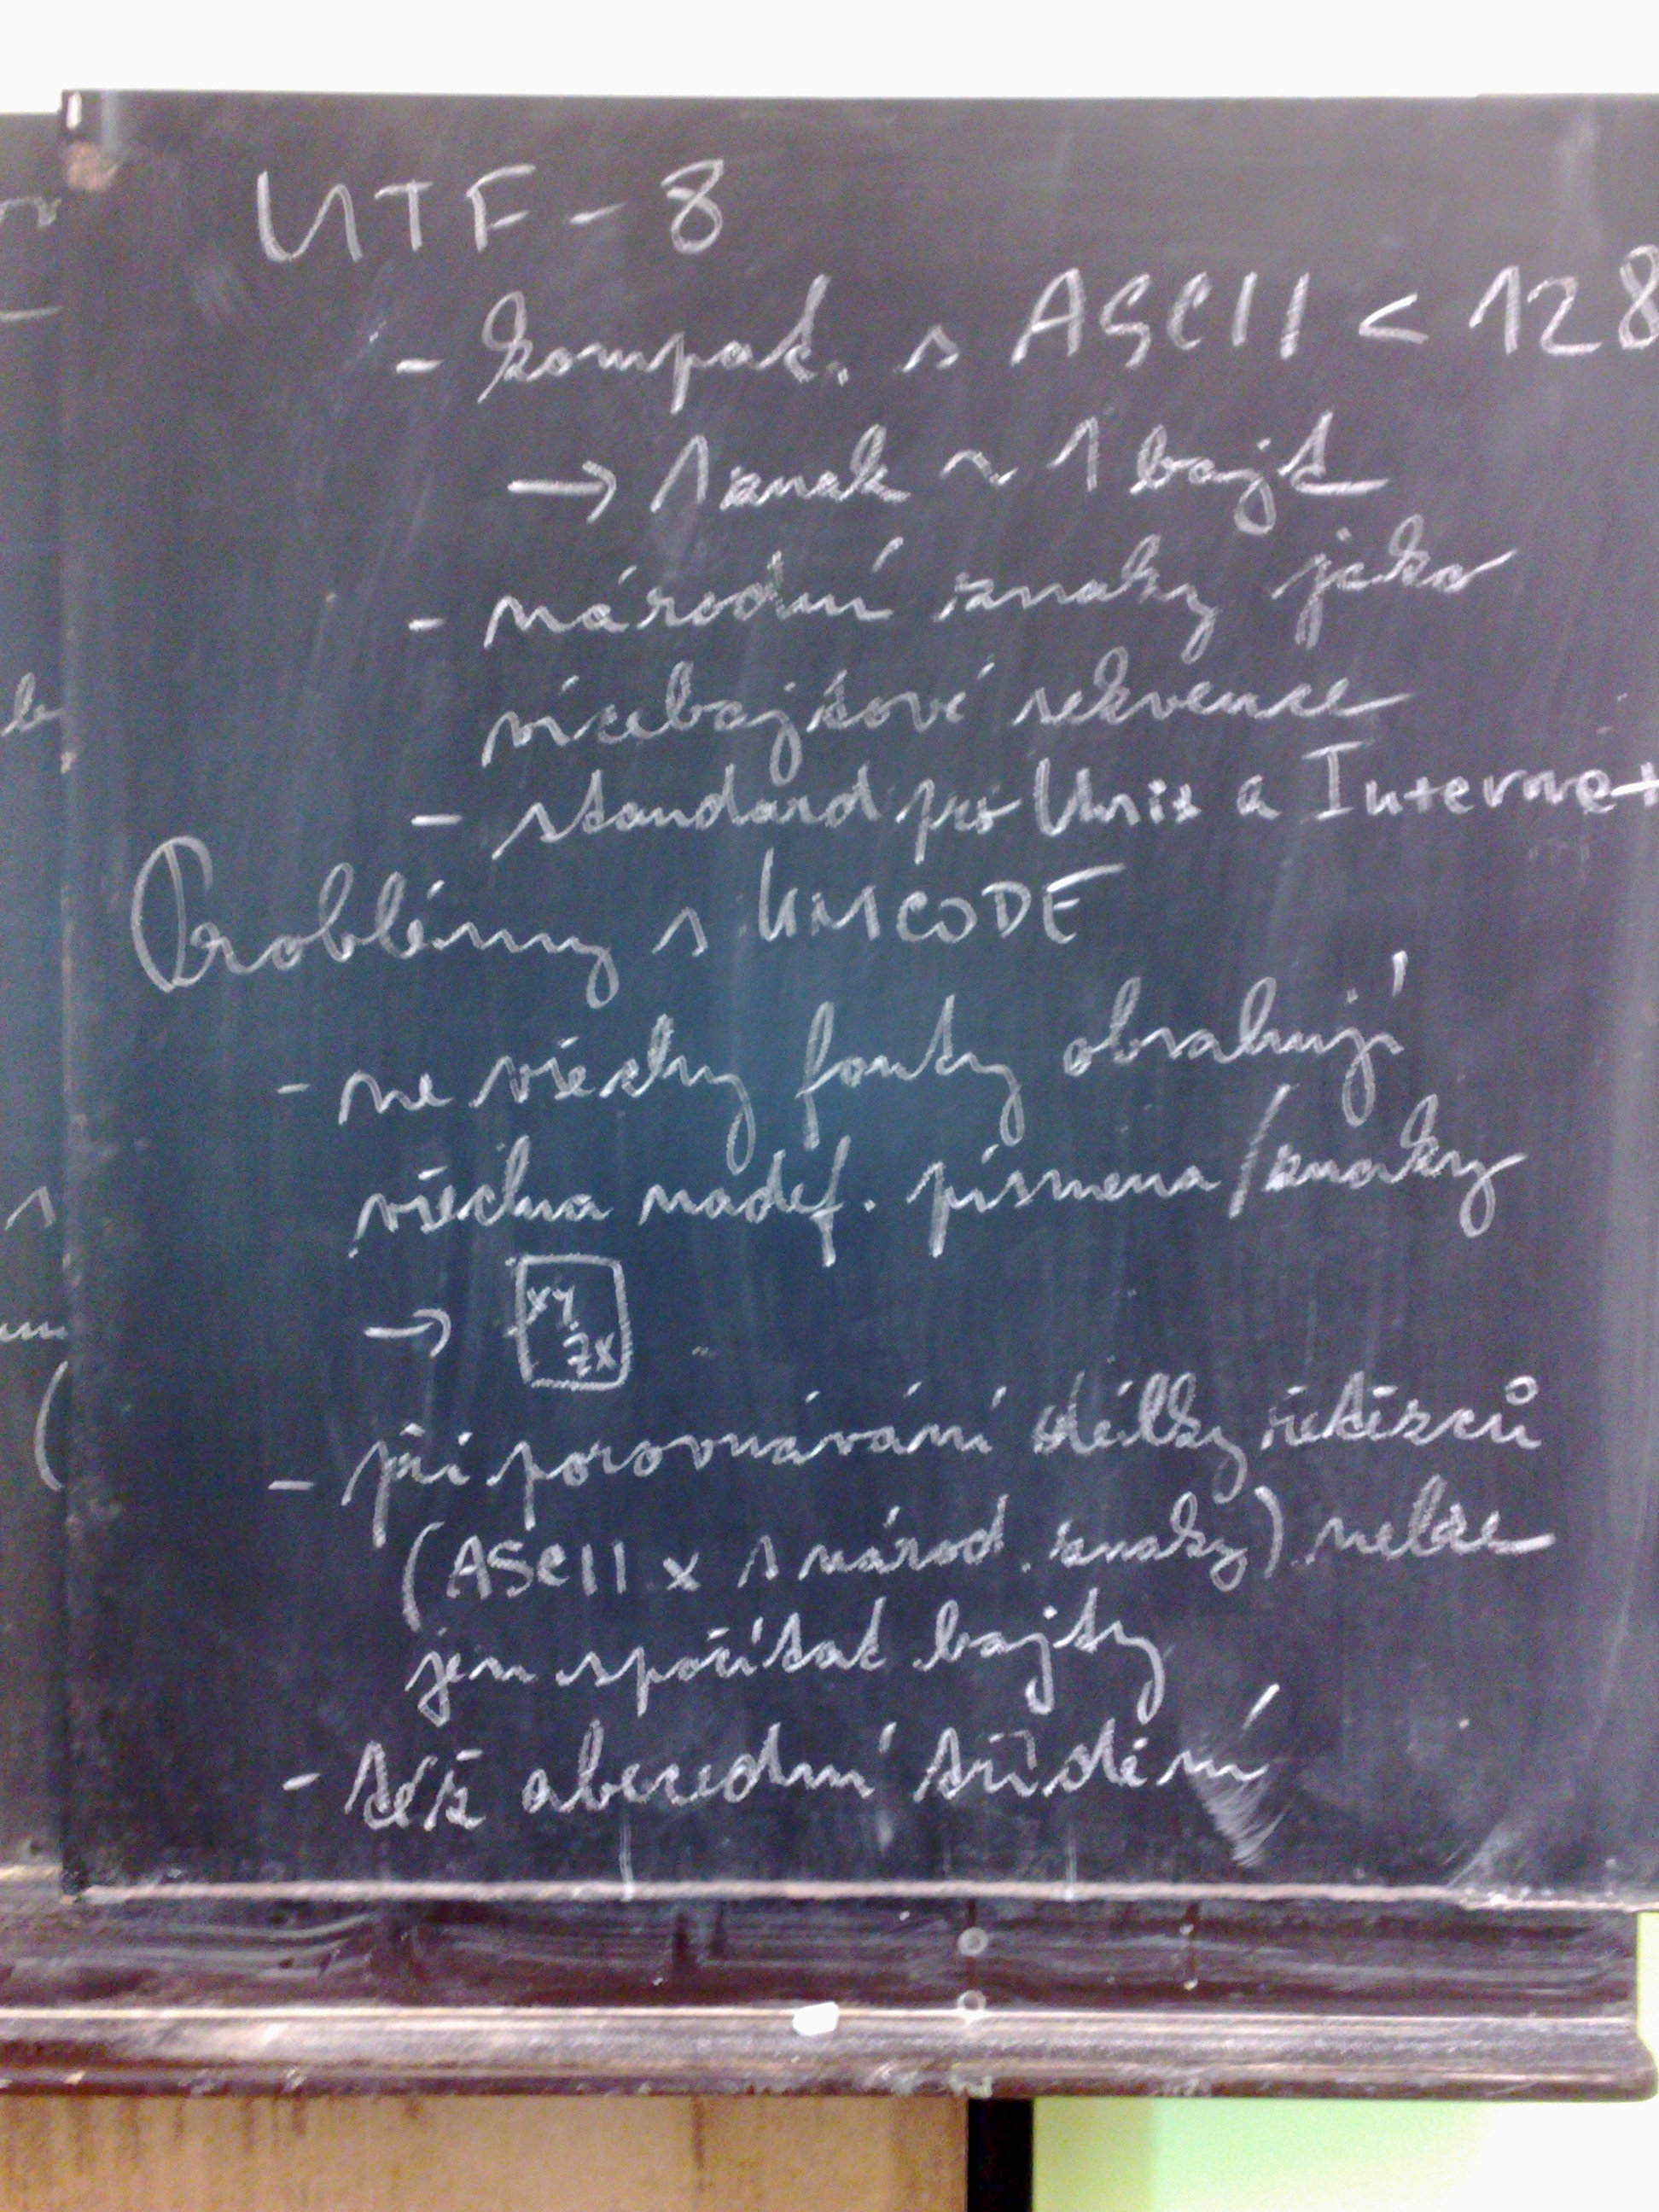 UTF-8
- kompat. s ASCII < 128
→ 1 znak ~ 1 bajt
- národní znaky jako
vícebajtové sekvence
- standard pro Unix a Internet
Problémy s UNICODE
- ne všechny fonty obsahují
všechna nadef. písmena/znaky
→ xy
zx
- při porovnávání délky řetězců
(ASCII x s národ. znaky) nelze
jen spočítat bajty
- též abecední třídění